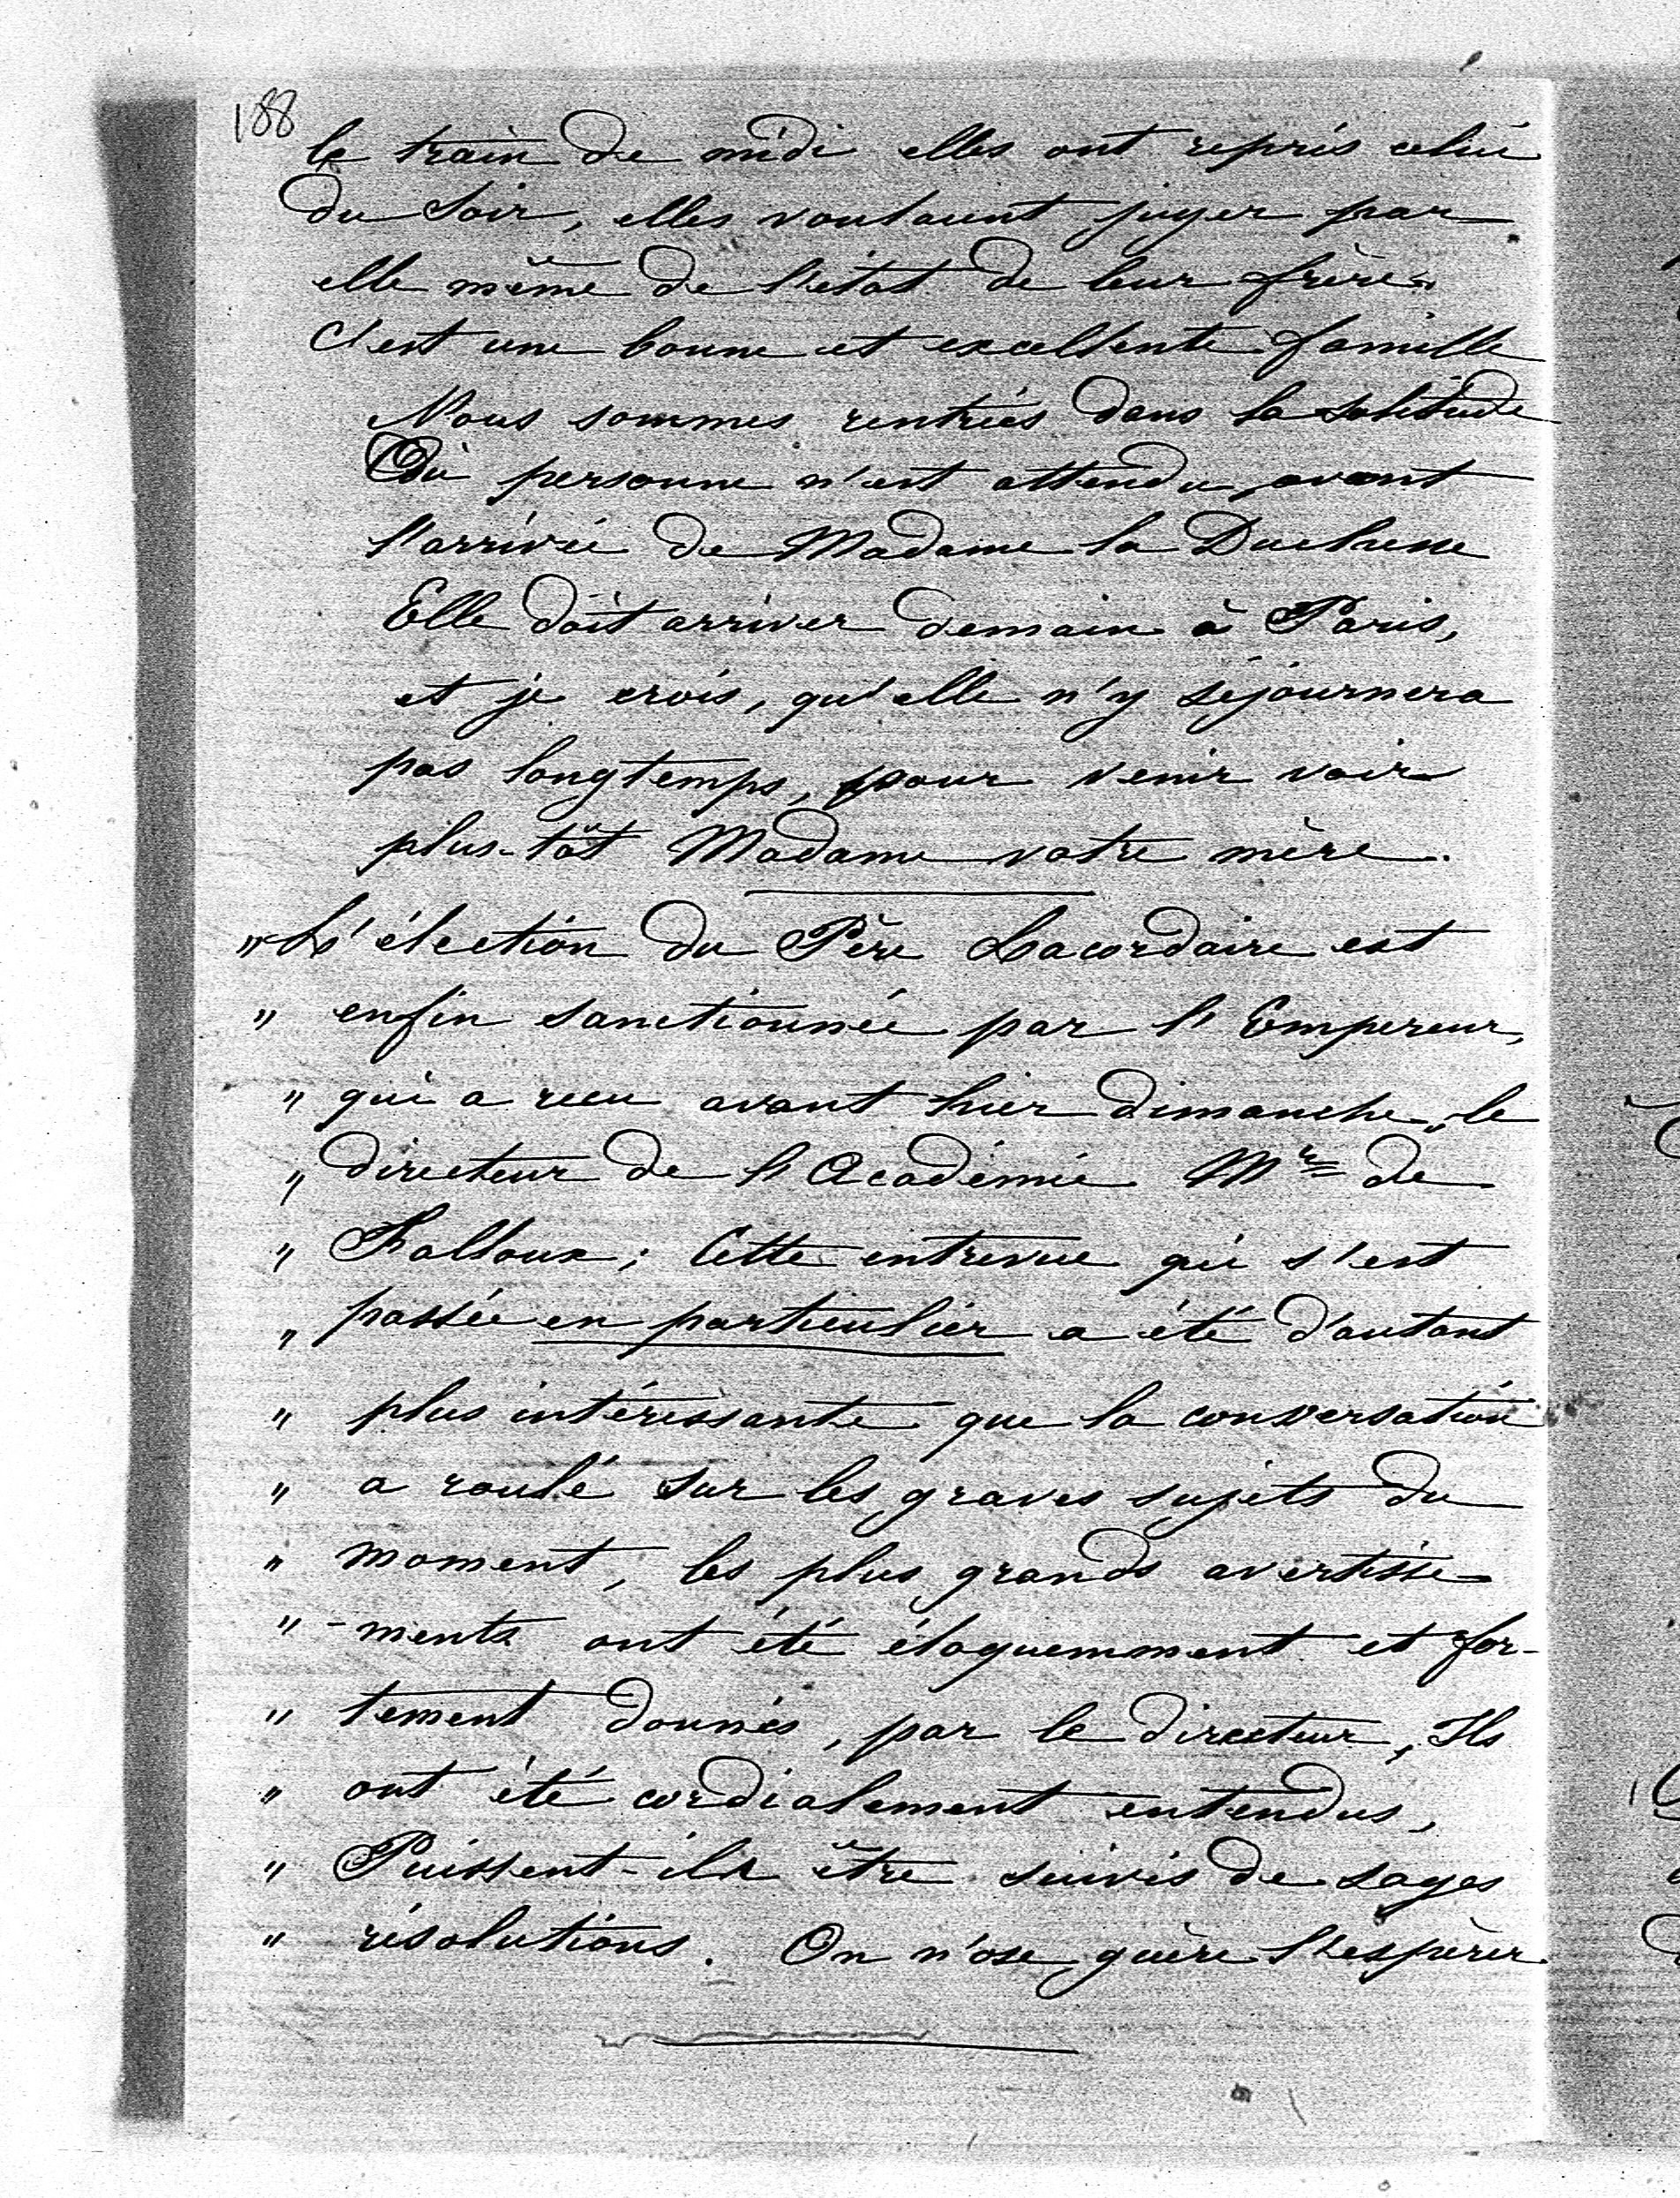 188
le train de midi elles ont repris celui
du soir, elles voulaient juger par
elle même de l'état de leur frère.
C'est une bonne et excellente famille
Nous sommes rentrés dans la solitude
Où personne n'est attendu, avant
l'arrivée de Madame la Duchesse
Elle doit arriver demain à Paris,
et je crois, qu'elle n'y séjournera
pas longtemps, pour venir voir
plus-tôt Madame votre mère.
" L'élection du Père Lacordaire est
" enfin sanctionnée par l'Empereur,
" qui a recu avant hier dimanche, le
" directeur de l'Académie Mr de
" Falloux; Cette entrevue qui s'est
" passée en particulier a été d'autant
" plus intéressante que la conversation
" a roulé sur les graves sujets du
" moment, les plus grands avertisse
" -ments ont été éloquemment et for-
" tement donnés, par le directeur, Ils
" ont été cordialement entendus,
" Puissent-ils être suivis de sages
" résolutions. On n'ose guère l'espérer.